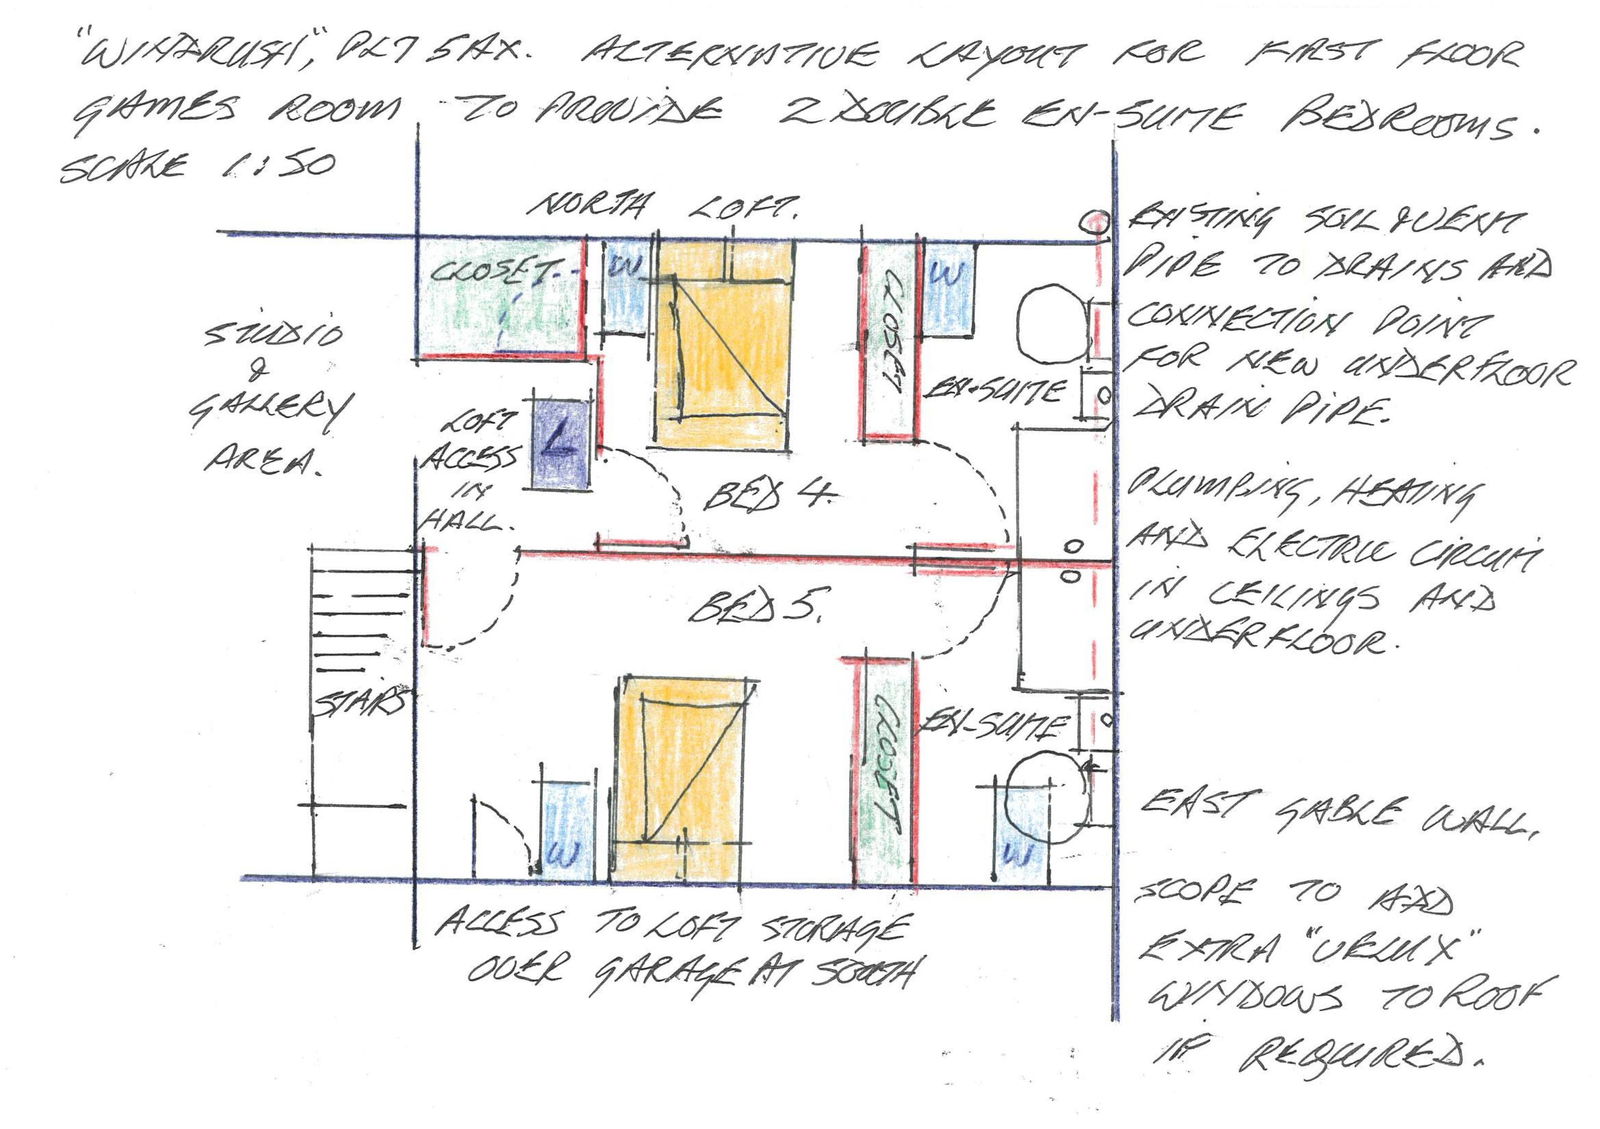 "WINDRUSH", PL7 5AX. ALTERNATIVE LAYOUT FOR FIRST FLOOR
GAMES ROOM TO PROVIDE 2 DOUBLE EN-SUITE BEDROOMS.
SCALE 1:50
NORTH LOFT.
CLOSET
W
CLOSET
W
EXISTING SOIL & VENT
PIPE TO DRAINS AND
CONNECTION POINT
FOR NEW UNDERFLOOR
DRAIN PIPE.
STUDIO
&
GALLERY
AREA.
LOFT
ACCESS
IN
HALL.
L
EN-SUITE
BED 4.
PLUMBING, HEATING
AND ELECTRIC CIRCUIT
IN CEILINGS AND
UNDERFLOOR.
BED 5.
STAIRS
CLOSET
EN-SUITE
W
W
EAST GABLE WALL.
SCOPE TO ADD
EXTRA "VELUX"
WINDOWS TO ROOF
IF REQUIRED.
ACCESS TO LOFT STORAGE
OVER GARAGE AT SOUTH